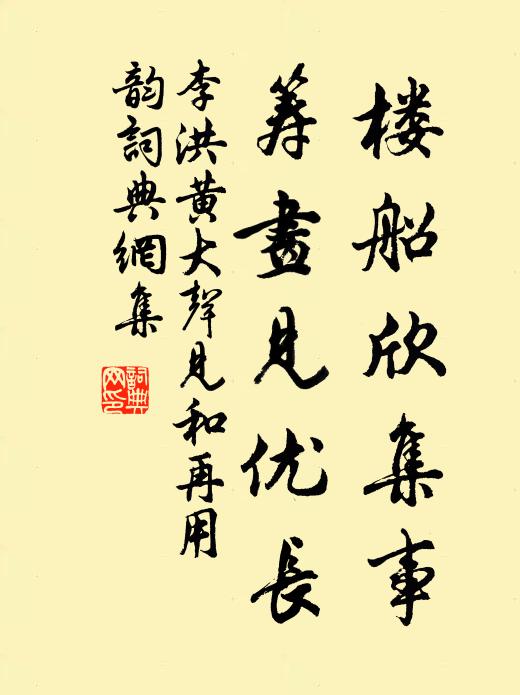 楼船欣集事
筹畫見优長
李洪黄大聲見和再用
韵詞典網集
詞典
网印